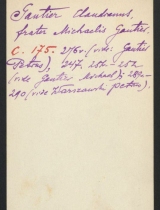 Gautier Claudianus,
frater Michaelis Gautier.
C. 175. 276v. (vide: Gautier
Petrus), 247, 251-252
(vide Gautier Michael); 289-
290 (vide Kazanowski Petrus).